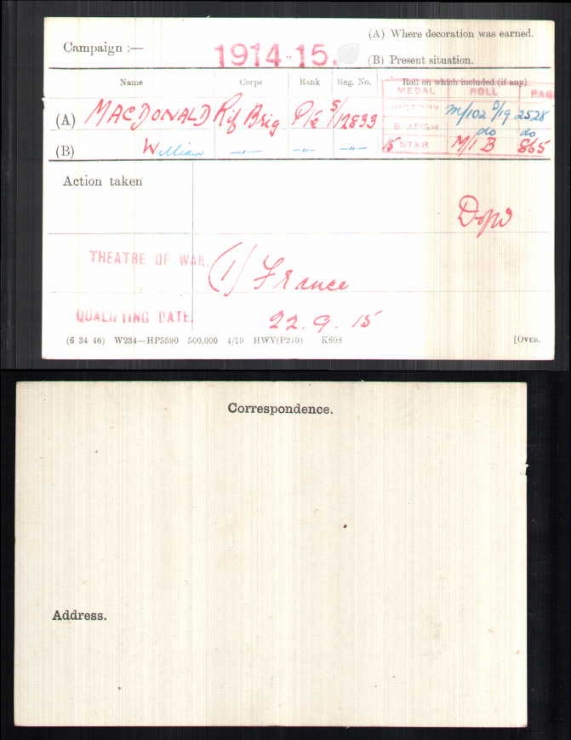 (A) Where decoration was earned.
Campaign :—
1914-15.
(B) Present situation.
Name Corps Rank Reg. No. Roll on which included (if any)
MEDAL ROLL PAGE
(A) MACDONALD Rif Brig Pte S/12833 VICTORY M/102 B/19 2528
BRITISH do do
(B) William —„— —„— —„— 15 STAR M/1 B 865
Action taken
THEATRE OF WAR. (1) France
QUALIFYING DATE. 22. 9. 15
(6 34 46) W234—HP5590 500,000 4/19 HWV(P210) K608 [OVER.
Correspondence.
Address.